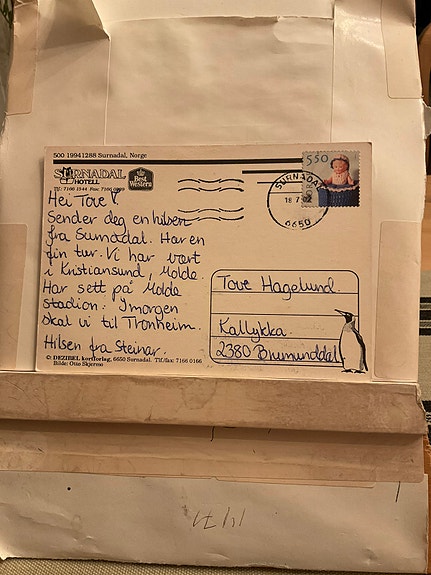 500 19941288 Surnadal, Norge
SURNADAL
HOTELL
Tlf: 7166 1544 Fax: 7166
Best
Western
5.50
SURNADAL
18 7
6650
Hei Tove!
Sender deg en hilsen
fra Surnadal. Har en
fin tur. Vi har vært
i Kristiansund, Molde.
Har sett på Molde
stadion. Imorgen
skal vi til Tronheim.
Hilsen fra Steinar.
Tove Hagelund.
Kallykka.
2380 Brumunddal
© DEZIBEL kortforlag, 6650 Surnadal. Tlf/fax: 7166 0166
Bilde: Otto Skjermo